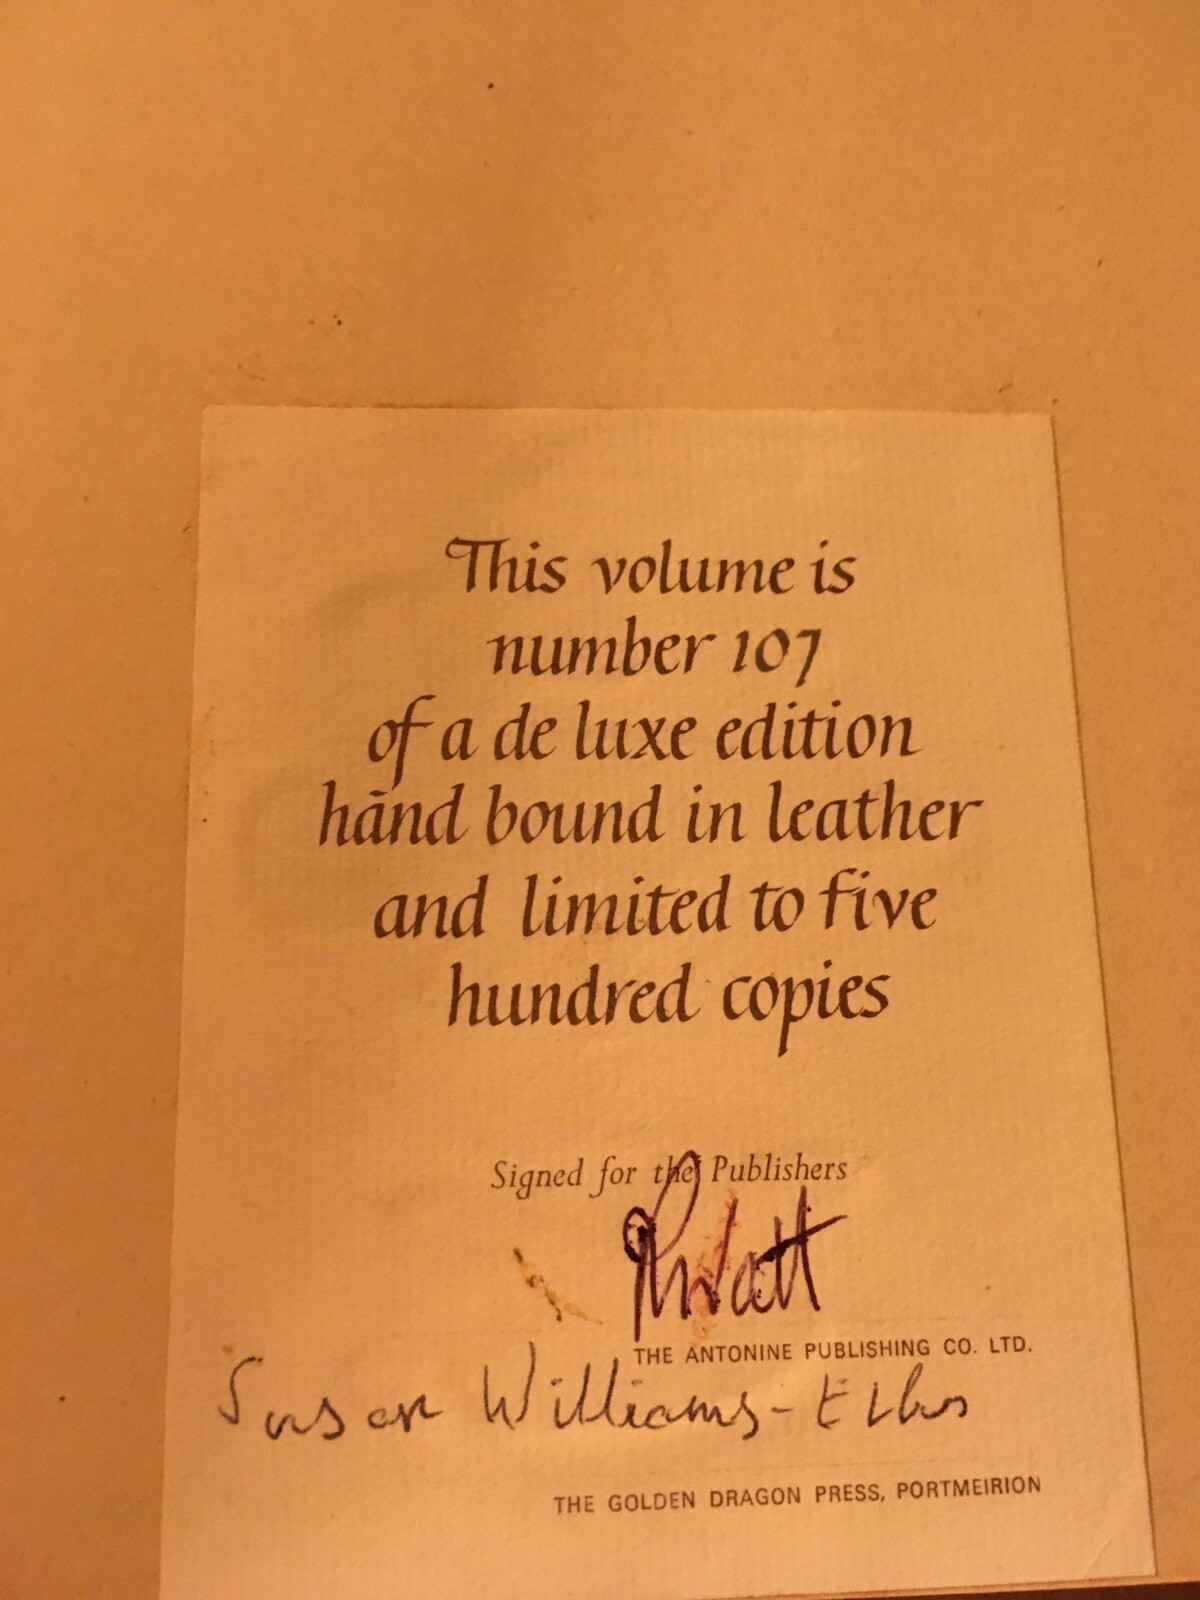 This volume is
number 107
of a de luxe edition
hand bound in leather
and limited to five
hundred copies
Signed for the Publishers
THE ANTONINE PUBLISHING CO. LTD.
Susan Williams-Ellis
THE GOLDEN DRAGON PRESS, PORTMEIRION